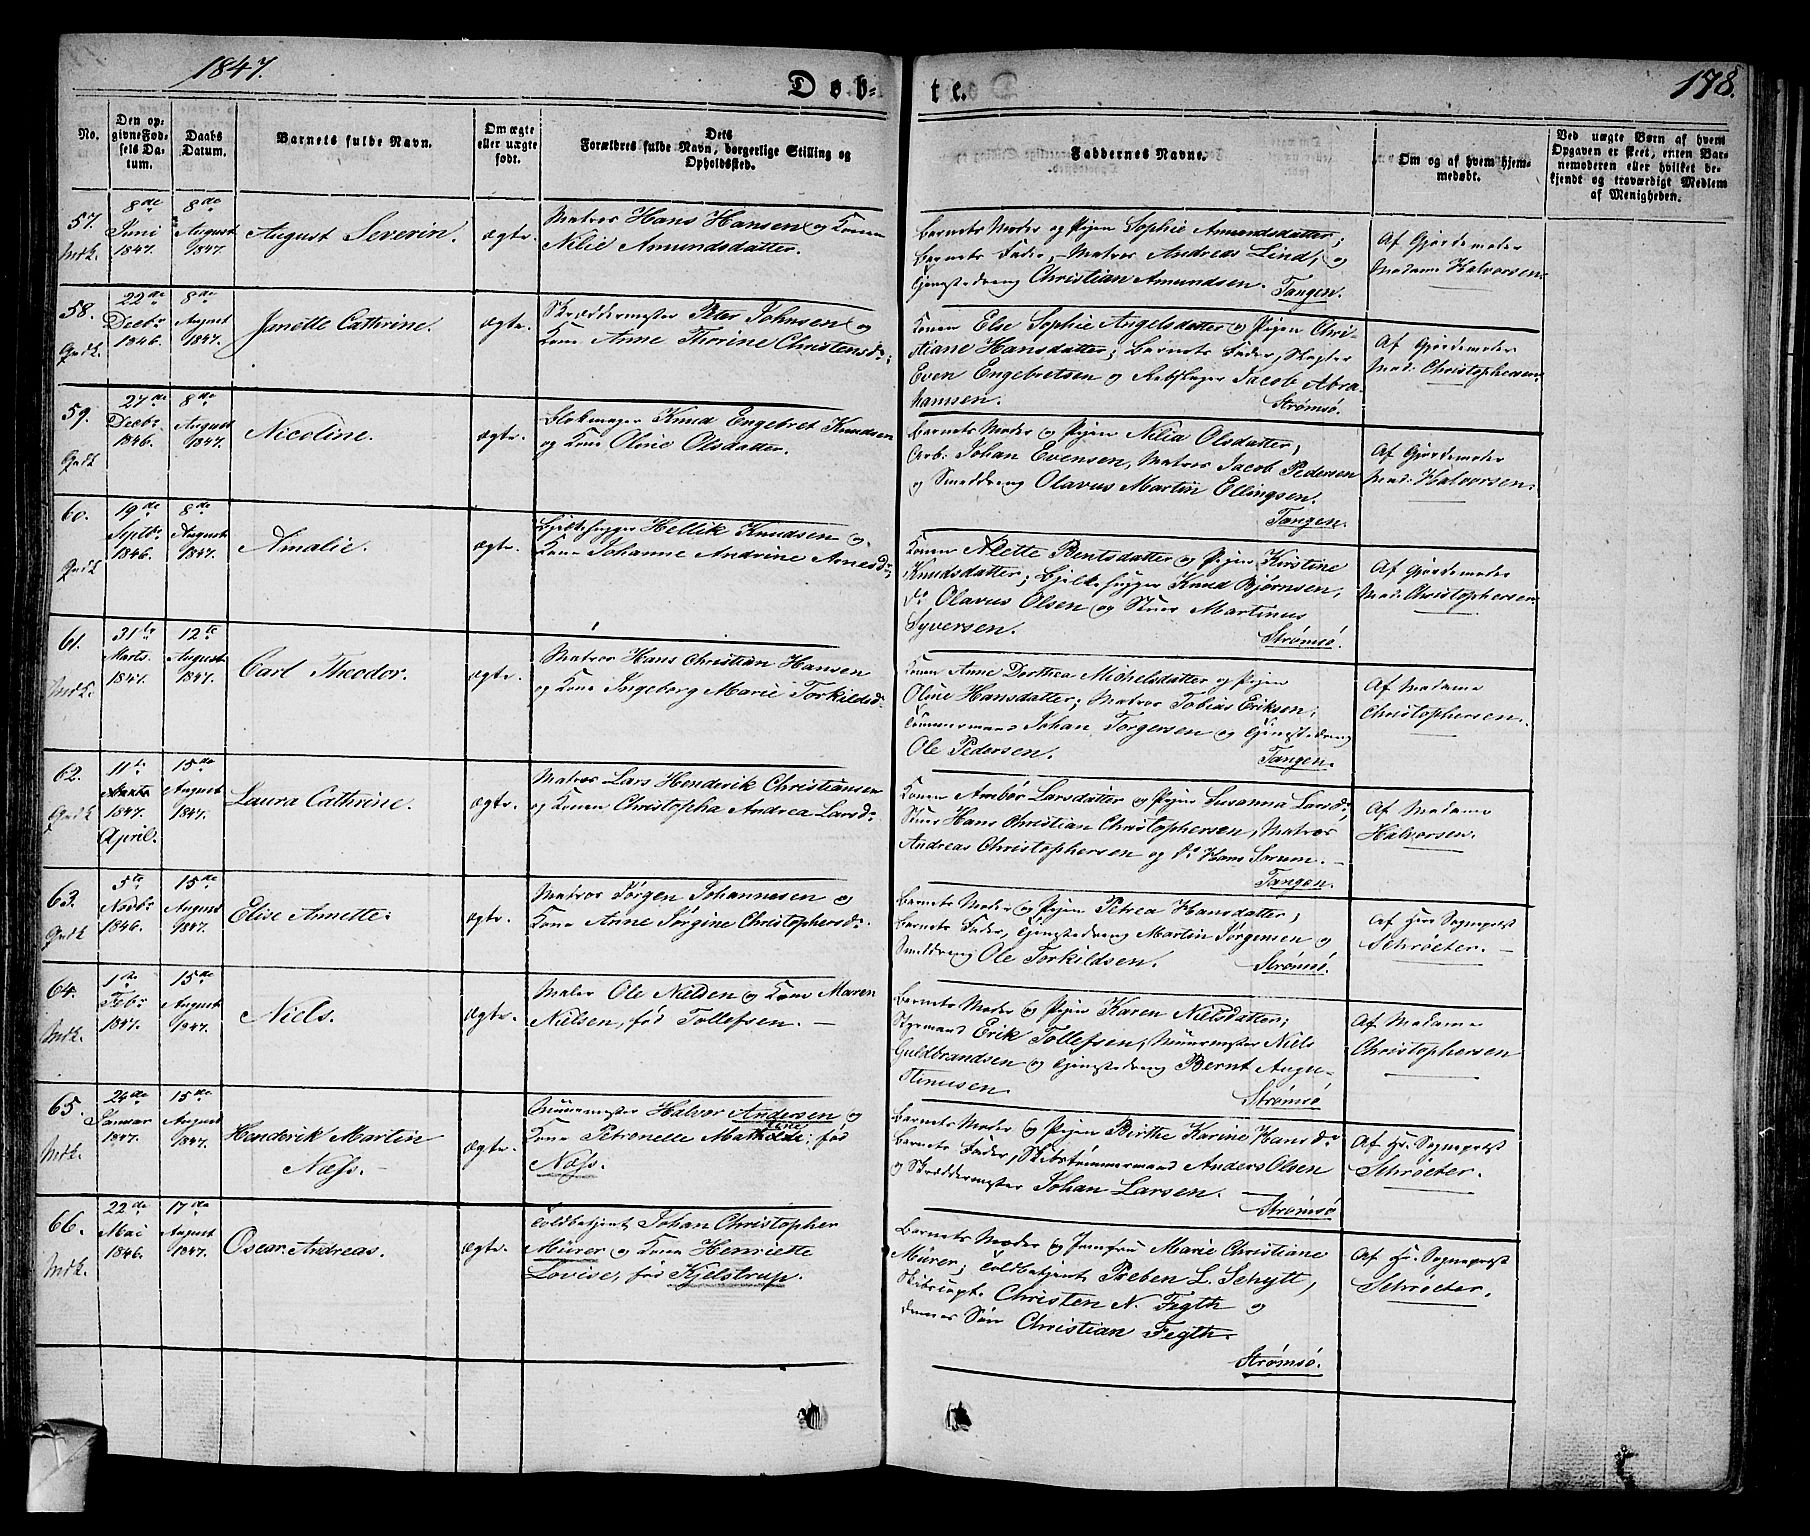 1847.
Døb-
te.
178.
No.
Den op-
givne Fød-
sels Da-
tum.
Daabs
Datum.
Barnets fulde Navn.
Om ægte
eller uægte
født.
Dets
Forældres fulde Navn, borgerlige Stilling og
Opholdssted.
Faddernes Navne.
Om og af hvem hjem-
medøbt.
Ved uægte Børn af hvem
Opgaven er skeet, enten Bar-
nemoderen eller hvilket be-
kjendt og troværdigt Medlem
af Menigheden.
57.
8de
Juni
1847.
8de
August
1847.
August Severin.
ægte.
Matros Hans Hansen og Konen
Nilie Amundsdatter.
Barnets Moder og Pigen Sophie Amundsdatter;
Barnets Fader, Matros Andreas Lind, og
Tjenestedreng Christian Amundsen. Tangen.
Af Gjordemoder
Madame Halvorsen.
58.
22de
Decbr
1846.
8de
August
1847.
Janette Cathrine.
ægte.
Skræddermester Peter Johnsen og
Kone Anne Thorine Christensd:
Konen Else Sophie Angelsdatter og Pigen Chri-
stiane Hansdatter; Barnets Fader, Slagter
Even Engebretsen og Rebslager Jacob Abra-
hamsen. Strømsø.
Af Gjordemoder
Mad: Christophersen.
59.
27de
Decbr
1846.
8de
August
1847.
Nicoline.
ægte.
Blokmager Knud Engebret Knudsen
og Kone Olvie Olsdatter.
Barnets Moder og Pigen Nilia Olsdatter;
Arb: Johan Evensen, Matros Jacob Pedersen
og Smeddreng Olavus Martin Ellingsen.
Tangen.
Af Gjordemoder
Mad: Halvorsen.
60.
19de
Septbr
1846.
8de
August
1847.
Amalie.
ægte.
Bjelkehugger Hellik Knudsen og
Kone Johanne Andrine Arnesd:
Konen Alette Bentsdatter og Pigen Kirstine
Knudsdatter; Bjelkehugger Knud Bjørnsen,
do Olavus Olsen og Stuer Martinus
Syversen. Strømsø.
Af Gjordemoder
Mad: Christophersen.
61.
31te
Marts.
1847.
12te
August
1847.
Carl Theodor.
ægte.
Matros Hans Christian Hansen
og Kone Ingeborg Marie Torkildsd:
Konen Anne Dorthea Michelsdatter og Pigen
Oline Hansdatter; Matros Tobias Eriksen;
Tømmermand Johan Torgersen og Tjenestedreng
Ole Pedersen. Tangen.
Af Madame
Christophersen.
62.
11te
1847.
April.
15de
August
1847.
Laura Cathrine.
ægte.
Matros Lars Henderik Christiansen
og Konen Christopha Andrea Larsd:
Konen Amber Larsdatter og Pigen Susanna Larsd:
Stuer Hans Christian Christophersen, Matros
Andreas Christophersen og do Hans Sørum.
Tangen.
Af Madame
Halvorsen.
63.
5te
Novbr
1846.
15de
August
1847.
Elise Annette.
ægte.
Matros Jørgen Johannesen og
Kone Anne Jørgine Christophersd:
Barnets Moder og Pigen Petrea Hansdatter;
Barnets Fader, Tjenestedreng Martin Jørgensen og
Smeddreng Ole Torkildsen. Strømsø.
Af Hr. Sogneprest
Schrøeter.
64.
1ste
Febr
1847.
15de
August
1847.
Niels.
ægte.
Maler Ole Nielsen og Kone Maren
Nielsen, fød Tollefsen.
Barnets Moder og Pigen Karen Nielsdatter;
Styrmand Erik Tollefsen, Muurmester Niels
Guldbrandsen og Tjenestedreng Bernt Augu-
stinusen. Strømsø
Af Madame
Christophersen
65.
24de
Januar
1847.
15de
August
1847.
Henderik Martin
Næss.
ægte.
Muurmester Halvor Andersen og
Kone Petronelle Mathilde, fød
Næss.
Barnets Moder og Pigen Birthe Karine Hansd:
Barnets Fader, Skibstømmermand Anders Olsen
og Skræddermester Johan Larsen.
Strømsø
Af Hr. Sogneprest
Schrøeter.
66.
22de
Mai
1846.
17de
August
1847.
Oscar Andreas.
ægte.
Toldbetjent Johan Christopher
Mürer og Kone Henriette
Lovise, fød Kjelstrup.
Barnets Moder og Jomfru Marie Christiane
Mürer; Toldbetjent Preben L. Schytt,
Skibscapt: Christen N. Fegth og
dennes Søn Christian Fegth.
Strømsø.
Af Hr. Sogneprest
Schrøeter.